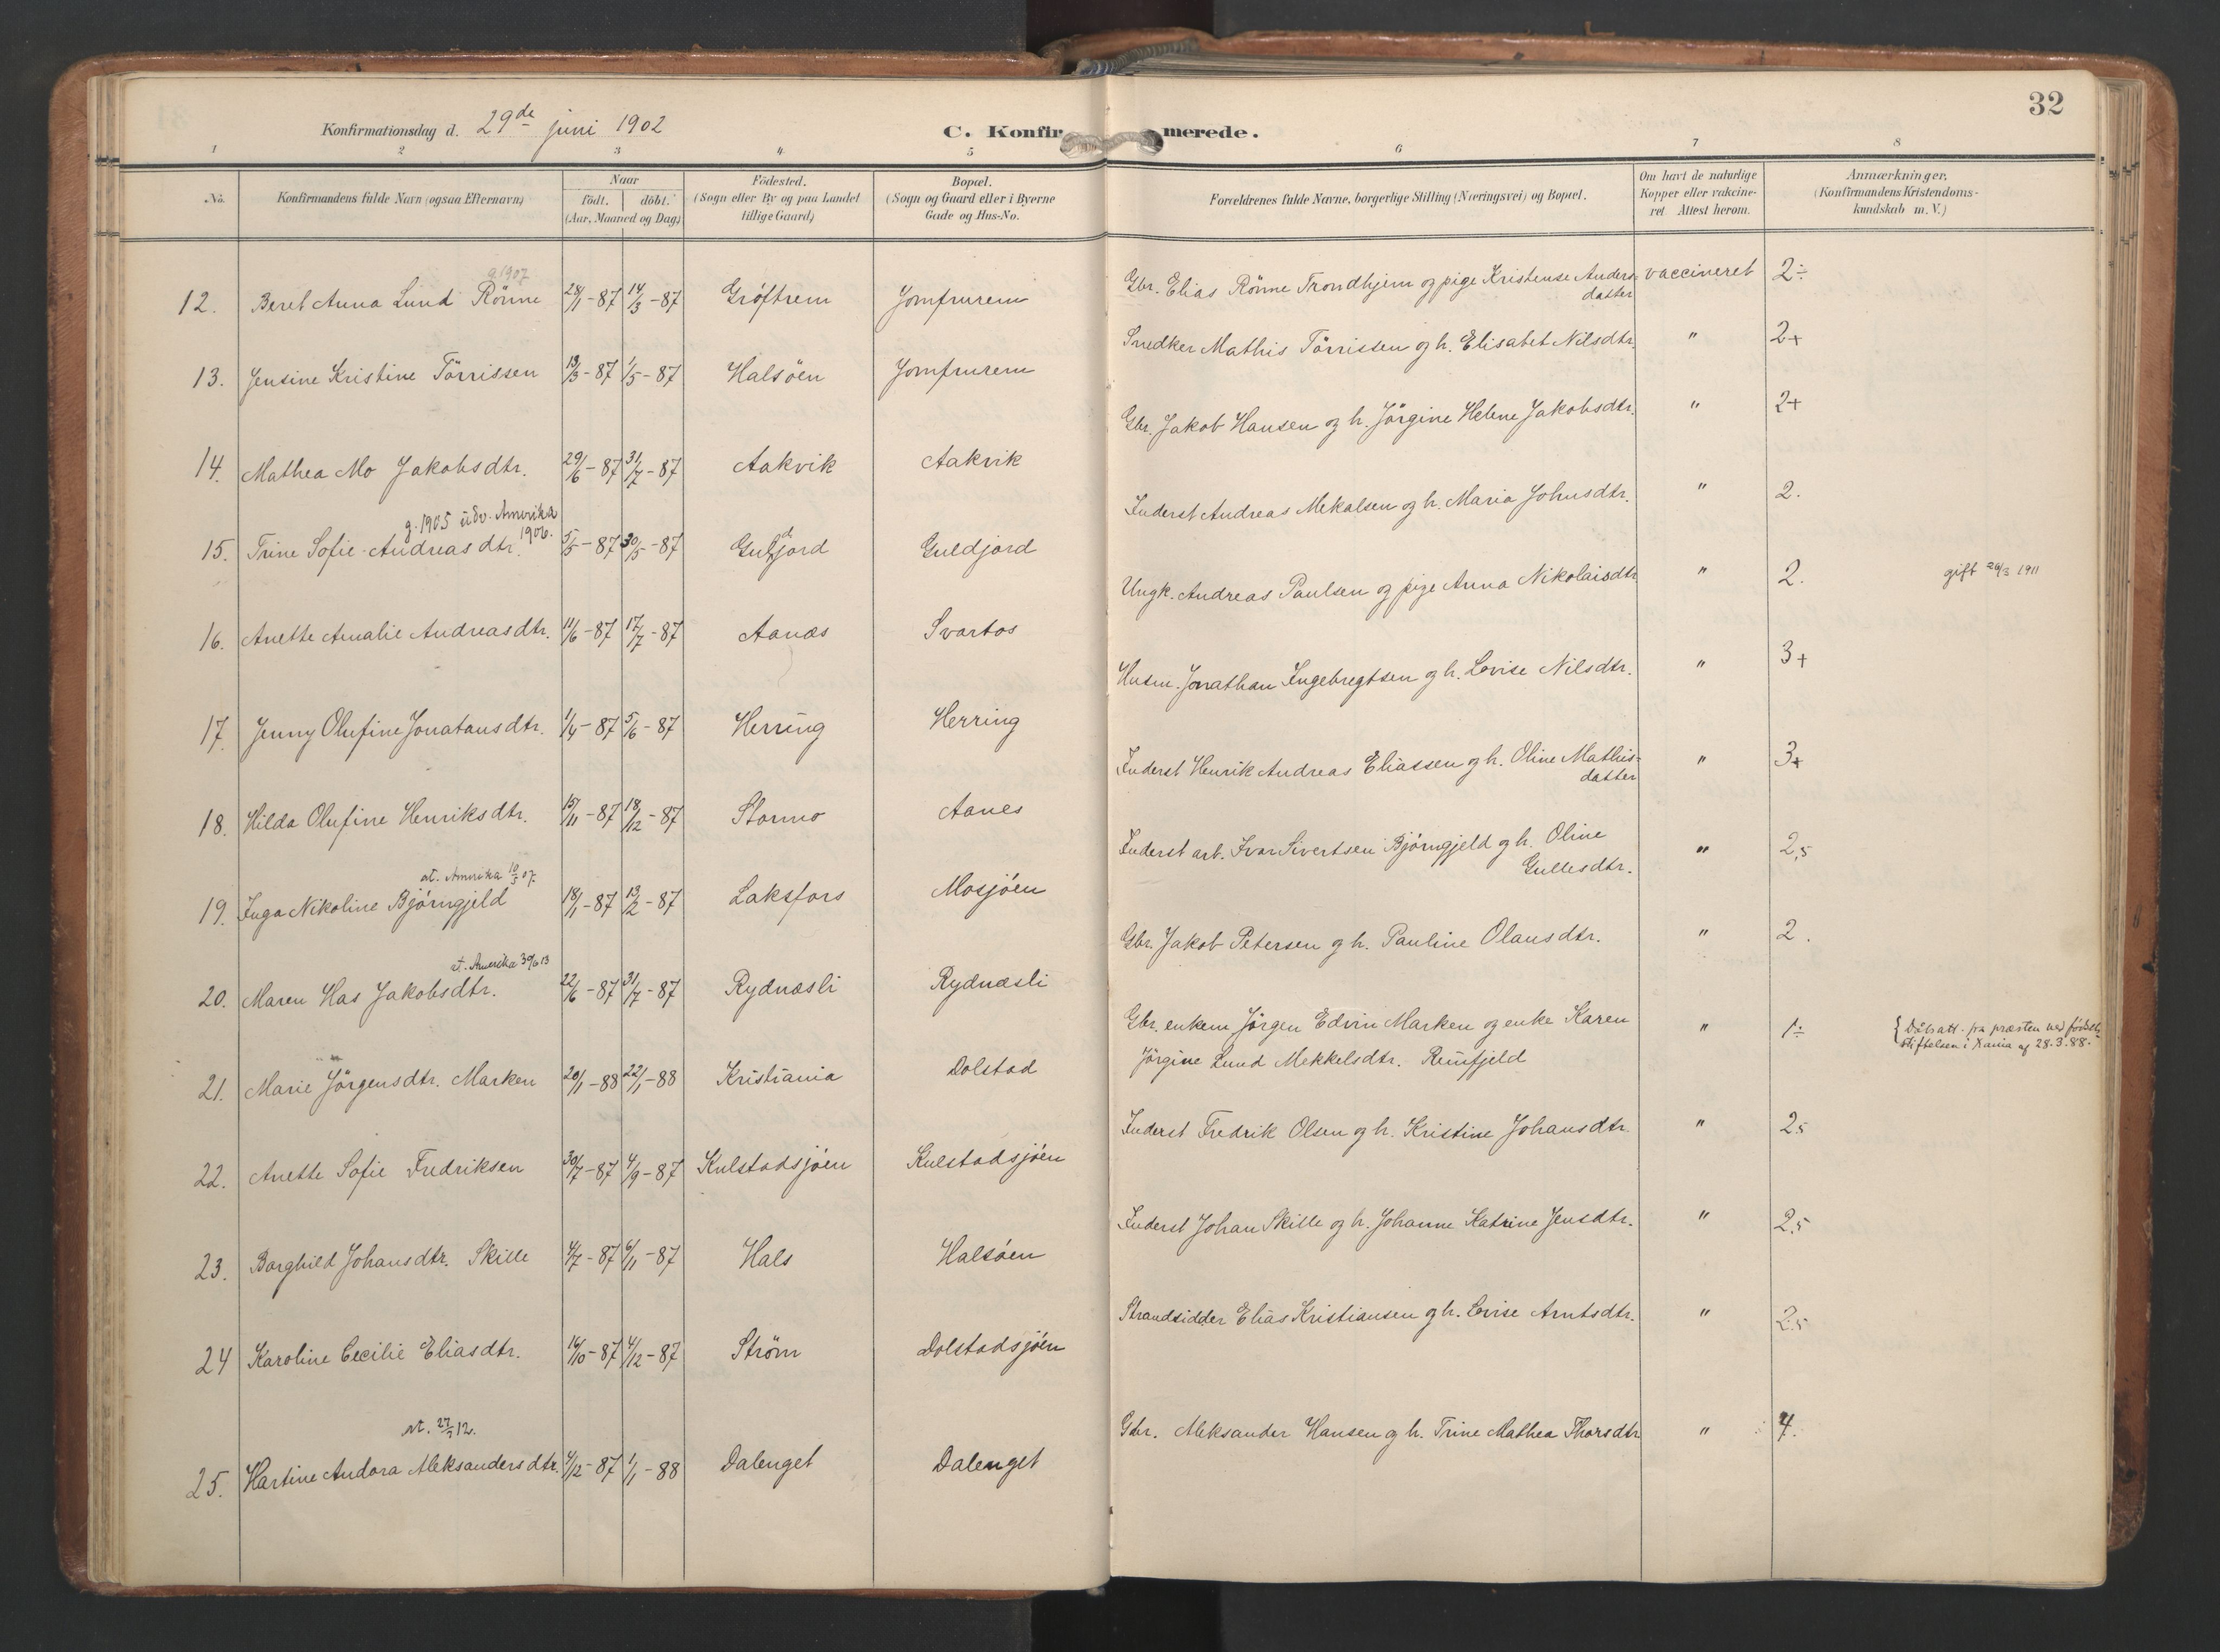 32
Konfirmationsdag d. 29de juni 1902
C. Konfirmerede.
1 2 3 4 5 6 7 8
No.
Konfirmandens fulde Navn (ogsaa Efternavn)
Naar
födt. döbt.
(Aar, Maaned og Dag)
Födested.
(Sogn eller By og paa Landet
tillige Gaard)
Bopæl.
(Sogn og Gaard eller i Byerne
Gade og Hus-No.
Forældrenes fulde Navne, borgerlige Stilling (Næringsvei) og Bopæl.
Om havt de naturlige
Kopper eller vaccine-
ret Attest herom.
Anmærkninger.
(Konfirmandens Kristendoms-
kundskab m. V.)
g. 1907
12. Beret Anna Lund Rönne 28/1-87 14/3-87 Gróftrem Jomfrurem Gbr. Elias Rönne Trondhjem og pige Kristense Anders- vaccineret 2÷
datter
13. Jensine Kristine Törrissen 13/3-87 1/5-87 Halsöen Jomfrurem Snedker Mathis Törrissen og h. Elisabet Nilsdtr. " 2+
14. Mathea Mo Jakobsdtr. 29/6-87 31/7-87 Aakvik Aakvik Gbr. Jakob Hansen og h. Jörgine Helene Jakobsdtr. " 2+
g. 1905 udv. Amerika
1906.
15. Trine Sofie Andreasdtr. 5/5-87 30/5-87 Guldjord Guldjord Inderst Andreas Mekalsen og h. Maria Johnsdtr. " 2.
16. Anette Amalie Andreasdtr. 11/6-87 17/7-87 Aanæs Svartos Ungk. Andreas Paulsen og pige Anna Nikolaisdtr " 2. gift 26/3 1911
17. Jenny Olufine Jonatansdtr. 1/4-87 5/6-87 Herring Herring Husm. Jonathan Ingebregtsen og h. Lovise Nilsdtr. " 3+
18. Hilda Olufine Henriksdtr. 15/11-87 18/12-87 Stormo Aanes Inderst Henrik Andreas Eliassen og h. Oline Mathis- " 3+
datter
at. Amerika 10/5 07.
19. Inga Nikoline Björngjeld 18/1-87 13/2-87 Laksfors Mosjöen Inderst arb. Ivar Sivertsen Björngjeld og h. Oline " 2,5
Gullesdtr.
at. Amerika 30/6 13
20. Maren Has Jakobsdtr. 22/6-87 31/7-87 Rydnæsli Rydnæsli Gbr. Jakob Petersen og h. Pauline Olausdtr. " 2.
21. Marie Jörgensdtr. Marken 20/1-88 22/1-88 Kristiania Dolstad Gbr. enkem. Jörgen Edvin Marken og enke Karen " 1÷ { Dåbsatt. fra præsten ved födsels-
Jörgine Lund Mekkelsdtr. Reinfjeld stiftelsen i Xania af 28.3.88.
22. Anette Sofie Fredriksen 30/7-87 4/9-87 Kulstadsjöen Kulstadsjöen Inderst Fredrik Olsen og h. Kristine Johansdtr. " 2,5
23. Borghild Johansdtr. Skille 4/7-87 6/11-87 Hals Halsöen Inderst Johan Skille og h. Johanne Katrine Jensdtr. " 2,5
24 Karoline Cecilie Eliasdtr. 16/10-87 4/12-87 Ström Dolstadsjöen Strandsidder Elias Kristiansen og h. Lovise Arntsdtr. " 2,5
at. 12.
25. Hartine Andora Aleksandersdtr. 4/12-87 1/1-88 Dalenget Dalenget Gbr. Aleksander Hansen og h. Trine Mathea Thorsdtr " 4.